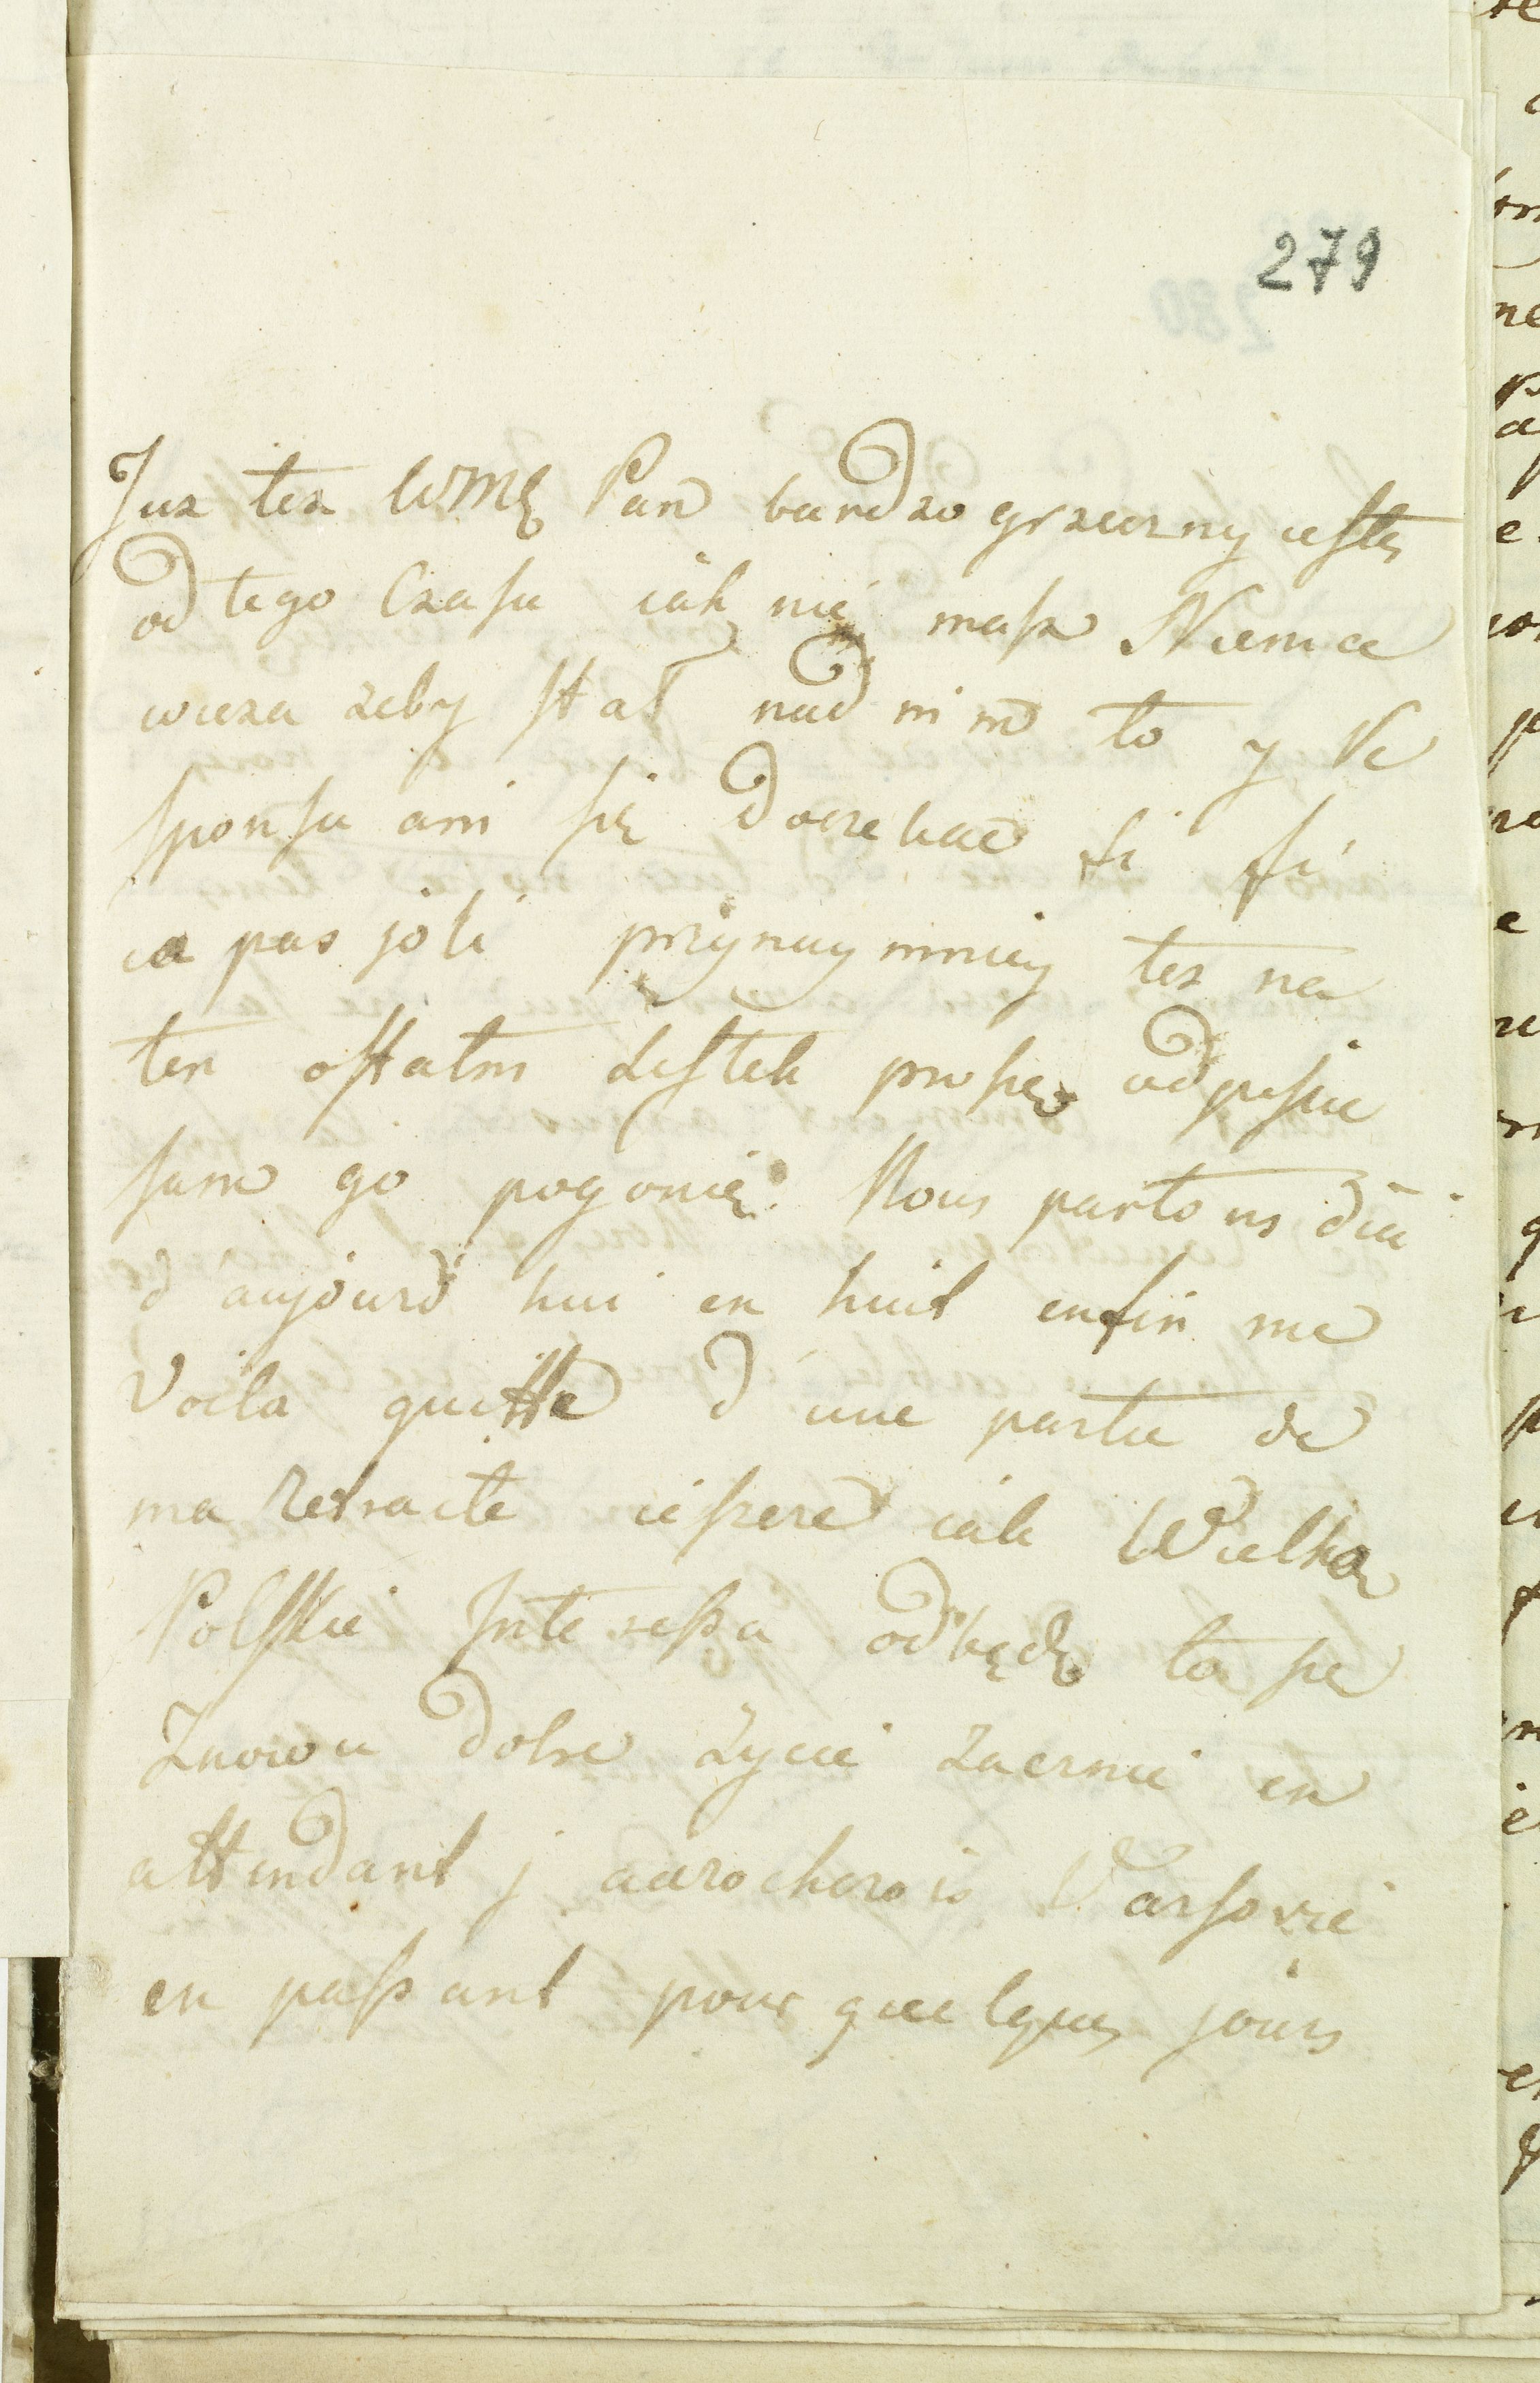 279
Juz tez WMĆ Pan bardzo grzeczny iestes
od tego Czasu iak nie masz Niemce
wicza zeby stał nad nim to y Re
sponsu ani się doczekac fi fi
ca pas joli przynaymniey tez na
ten ostatni Listek proszę odpisac
sam go pogonię. Nous partons
d'aujourd'hui en huit enfin me
Voila quitte d'une partie de
ma retraite ieszcze iak Wielko
Polskie Interessa odbędę to sie
Znowu dobre Zycie zacznie en
attendant j'accrocherois Varsovie
en passant pour quelques jours